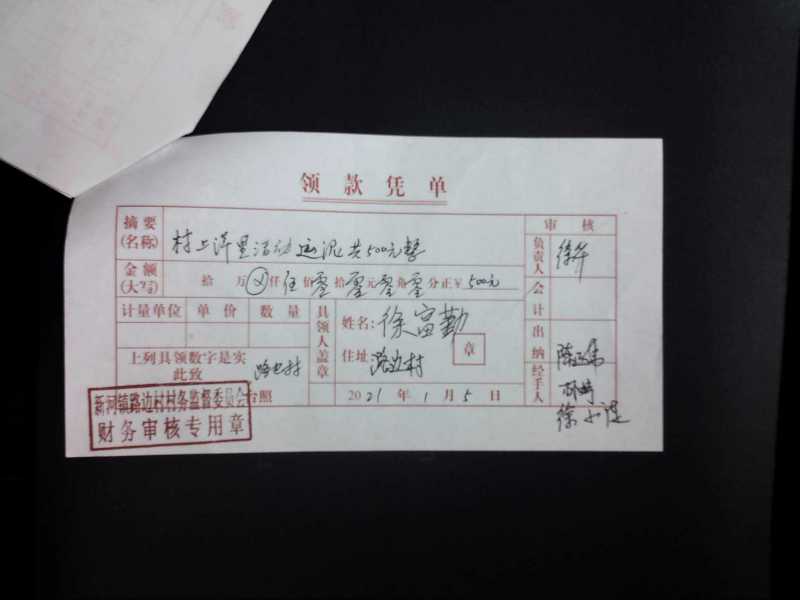 领款凭单
摘要(名称) 村上洋里活动运泥共500元整
审核
金额(大写) 拾 万 仟 伍 佰 零 拾 零 元 零 角 零 分正¥ 500元
负责人 徐
会计
计量单位 单价 数量
具领人盖章
姓名: 徐富勤
住址: 路边村
章
出纳 陈
上列具领数字是实
此致
路边村
台照
2021年1月5日
经手人
徐小
新河镇路边村村务监督委员会
财务审核专用章